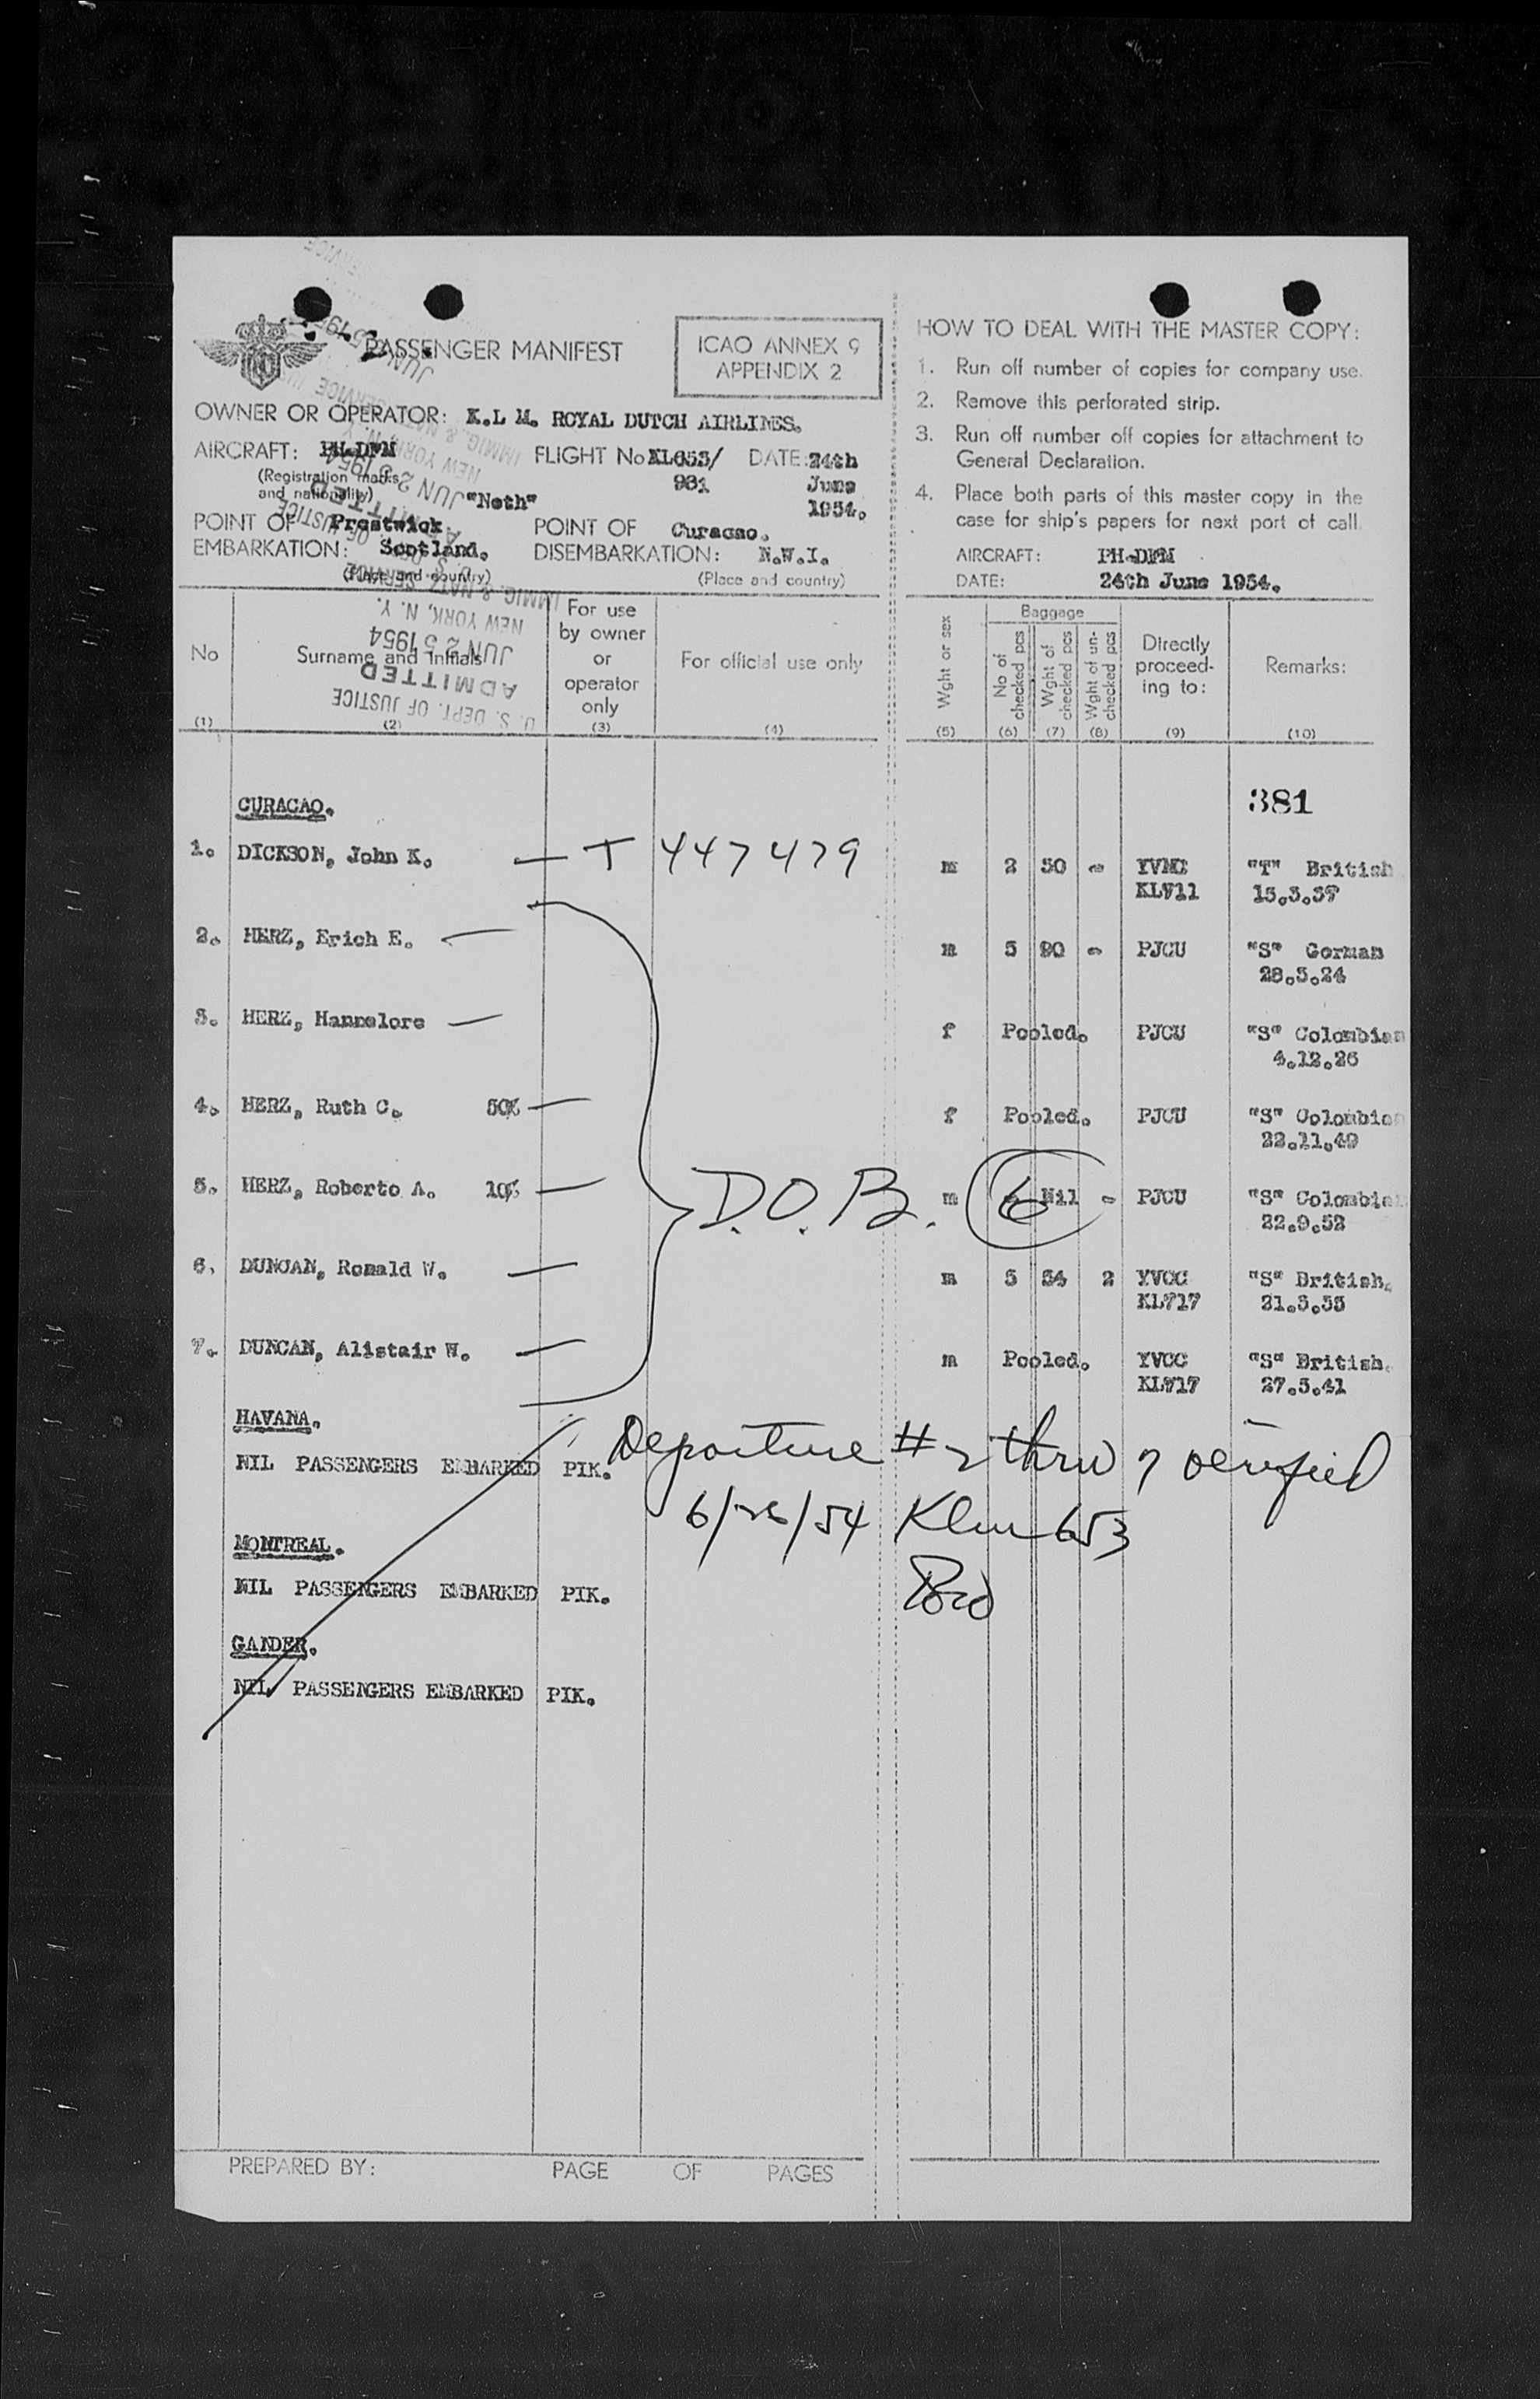 PASSENGER MANIFEST
ICAO ANNEX 9
APPENDIX 2
OWNER OR OPERATOR: K.L M. ROYAL DUTCH AIRLINES.
AIRCRAFT: PH-DFM FLIGHT No KL653/ DATE: 24th
(Registration marks 981 June
and nationality) "Neth" 1954.
POINT OF Prestwick POINT OF Curacao.
EMBARKATION: Scotland. DISEMBARKATION: N.W.I.
(Place and country) (Place and country)
IMMIG. & NATZ. SERVICE
NEW YORK, N. Y.
JUN 25 1954
ADMITTED
U. S. DEPT. OF JUSTICE
No Surname and Initials For use by owner or operator only For official use only
(1) (2) (3) (4)
CURACAO.
1. DICKSON, John K. — T 447479
2. HERZ, Erich E. —
3. HERZ, Hannelore —
4. HERZ, Ruth C. 50% —
5. HERZ, Roberto A. 10% —
D.O.B. 6
6. DUNCAN, Ronald W. —
7. DUNCAN, Alistair W. —
HAVANA.
NIL PASSENGERS EMBARKED PIK.
Departure # 2 thru 7 verified
6/25/54 Klm 653
MONTREAL.
NIL PASSENGERS EMBARKED PIK.
GANDER.
NIL PASSENGERS EMBARKED PIK.
PREPARED BY: PAGE OF PAGES
HOW TO DEAL WITH THE MASTER COPY:
1. Run off number of copies for company use.
2. Remove this perforated strip.
3. Run off number off copies for attachment to
General Declaration.
4. Place both parts of this master copy in the
case for ship's papers for next port of call.
AIRCRAFT: PH-DFM
DATE: 24th June 1954.
Baggage
Wght or sex No of checked pcs Wght of checked pcs Wght of un-checked pcs Directly proceed-ing to: Remarks:
(5) (6) (7) (8) (9) (10)
381
m 2 50 - YVMC "T" British
KL711 15.3.37
m 5 90 - PJCU "S" German
28.5.24
f Pooled. PJCU "S" Colombian
4.12.26
f Pooled. PJCU "S" Colombian
22.11.49
m - Nil - PJCU "S" Colombia
22.9.52
m 5 54 2 YVCC "S" British.
KL717 21.3.35
m Pooled. YVCC "S" British.
KL717 27.5.41